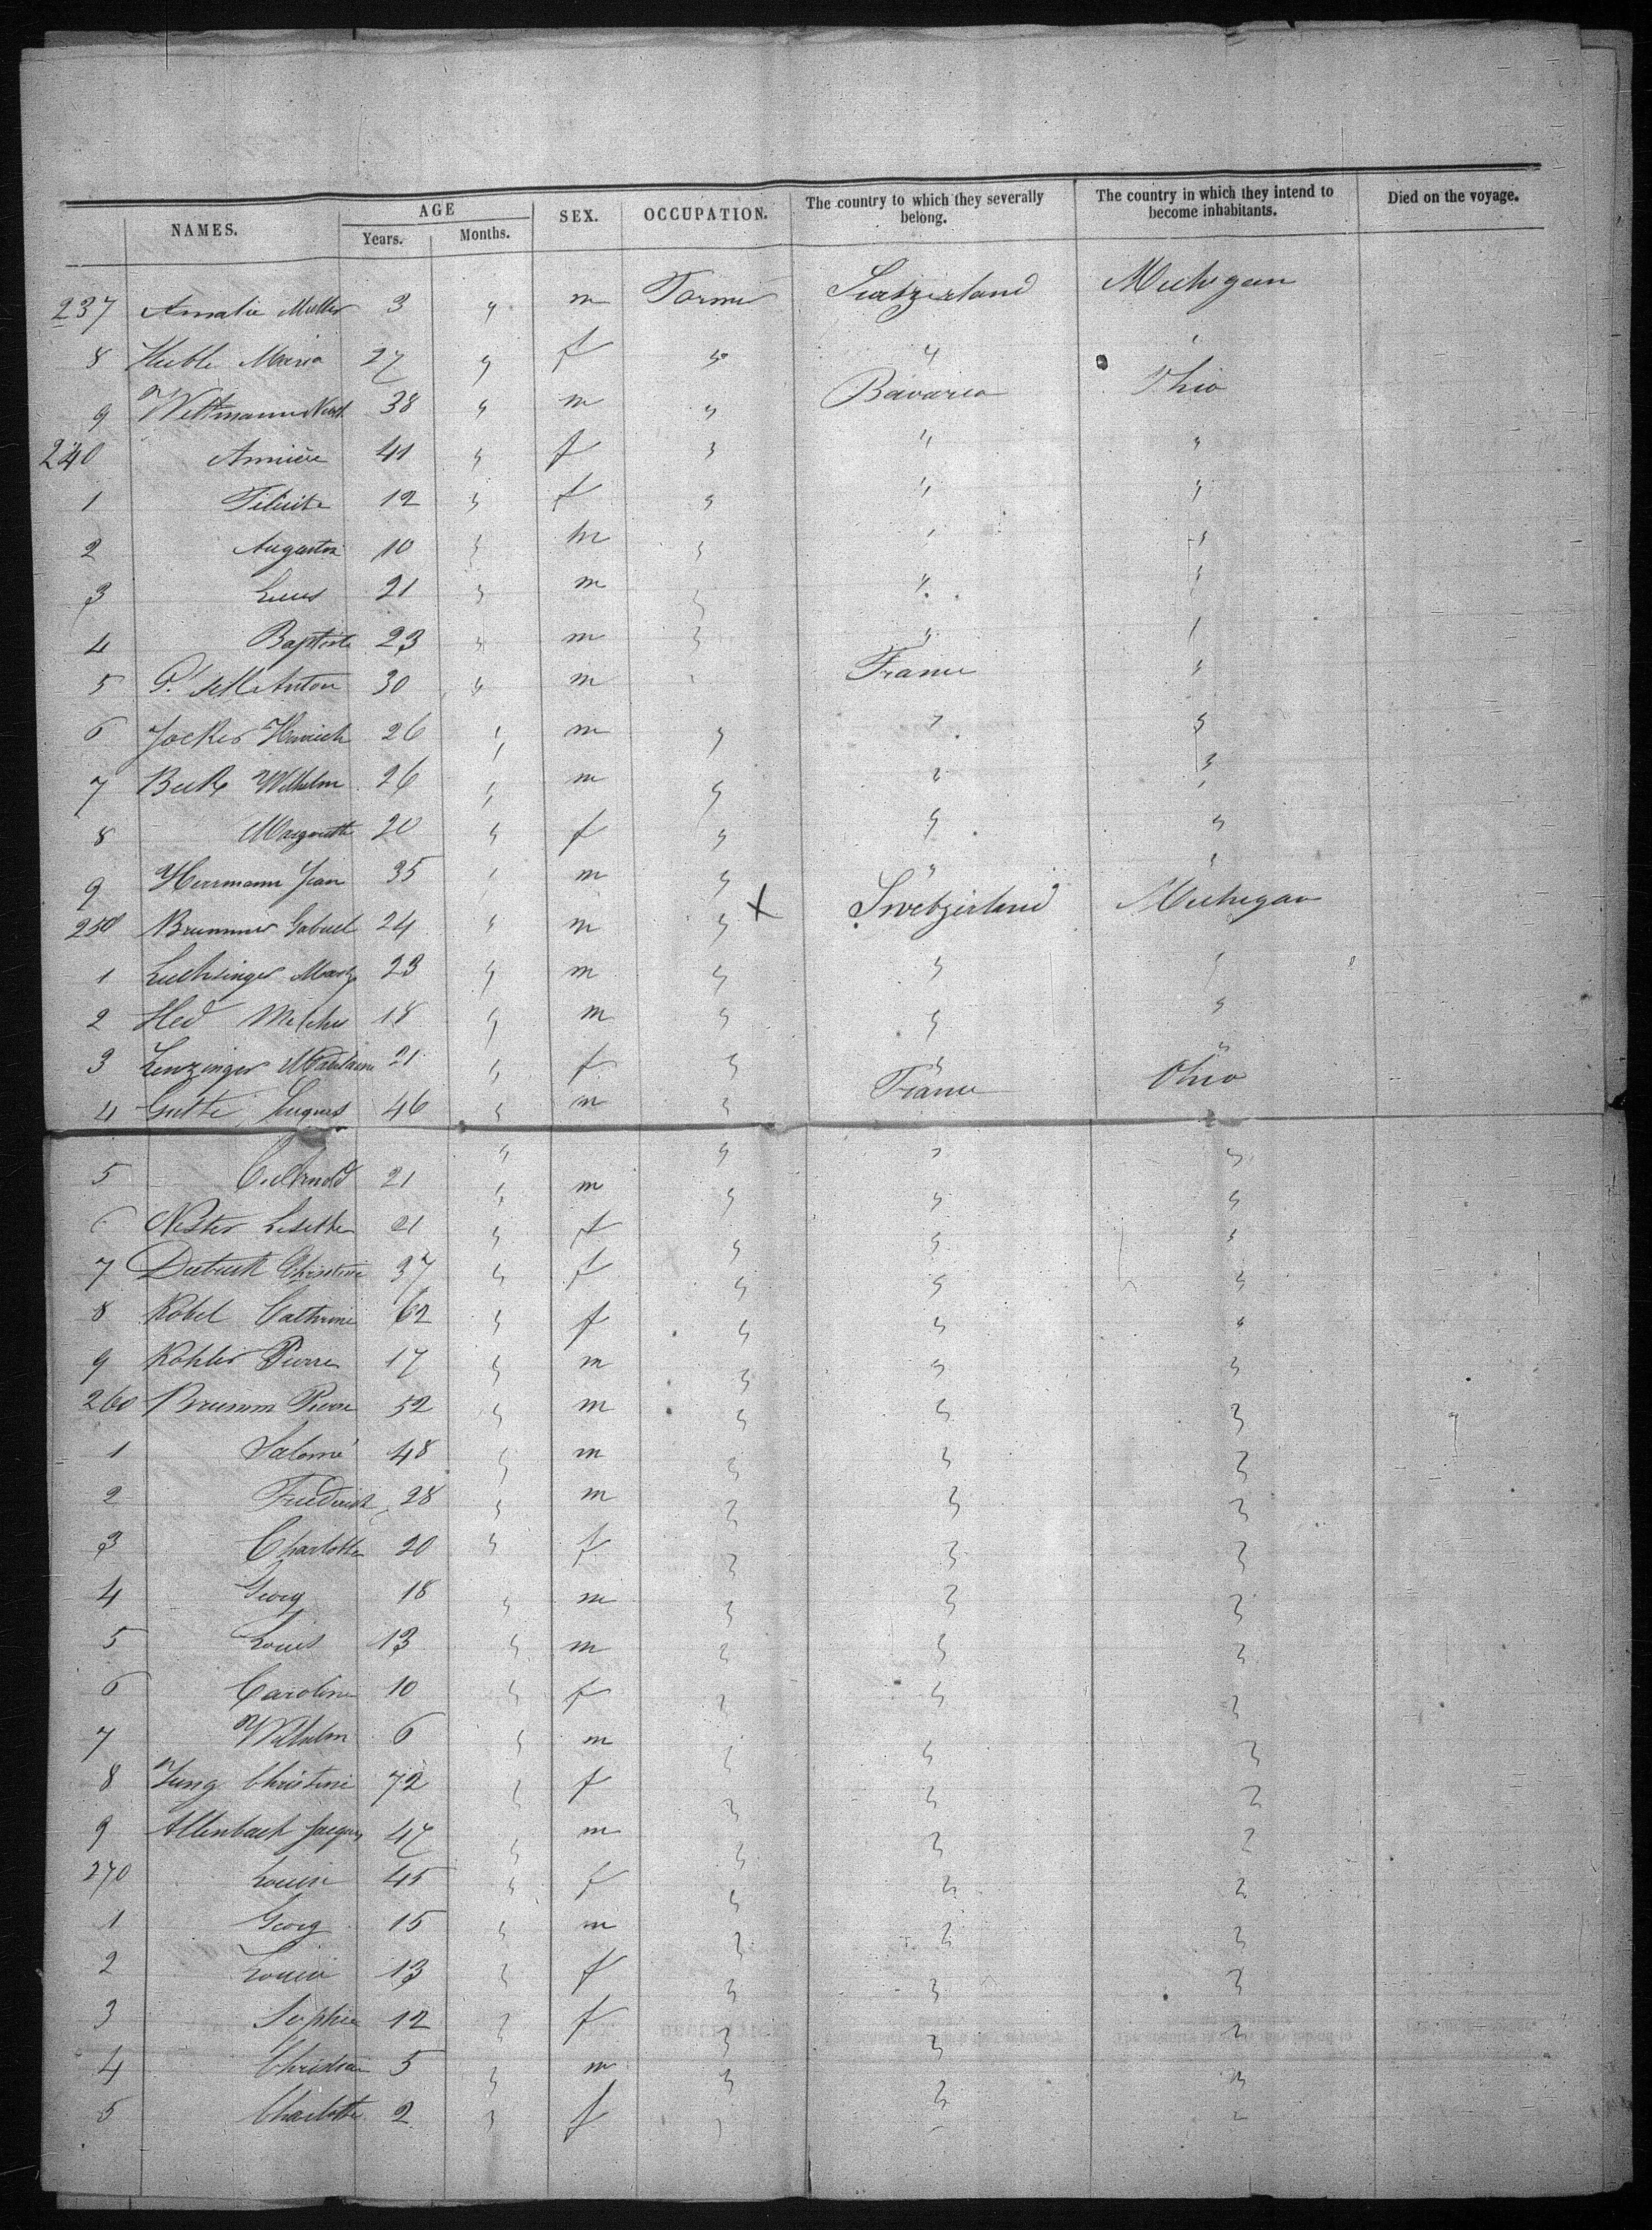 NAMES. AGE Years. Months. SEX. OCCUPATION. The country to which they severally belong. The country in which they intend to become inhabitants. Died on the voyage.
237 Amalie Muller 3 " m Farmer Switzerland Michigan
8 Maria 27 " f " " "
9 Wittmann 38 " m " Bavaria Ohio
240 41 " f " " "
1 12 " f " " "
2 Augustin 10 " m " " "
3 Louis 21 " m " " "
4 Baptiste 23 " m " " "
5 Anton 30 " m " France "
6 Jocker Heinrich 26 " m " " "
7 Beck Wilhelm 26 " m " " "
8 Margareth 20 " f " " "
9 Herrmann Jean 35 " m " " "
250 Brunner Gabriel 24 " m " X Switzerland Michigan
1 Luchsinger 23 " m " " "
2 Melchior 18 " m " " "
3 21 " f " " "
4 Jaques 46 " m " France Ohio
5 21 " m " " "
6 Nester Lisette 21 " f " " "
7 Christine 37 " f " " "
8 Kobel Cathrine 62 " f " " "
9 Kohler Pierre 17 " m " " "
260 Brumm Pierre 52 " m " " "
1 Salomé 48 " m " " "
2 Friedrich 28 " m " " "
3 Charlotte 20 " f " " "
4 Georg 18 " m " " "
5 Louis 13 " m " " "
6 Caroline 10 " f " " "
7 Wilhelm 6 " m " " "
8 Jung Christine 72 " f " " "
9 Allenbach Jaques 47 " m " " "
270 Louise 45 " f " " "
1 Georg 15 " m " " "
2 Louise 13 " f " " "
3 Sophie 12 " f " " "
4 Christian 5 " m " " "
5 Charlotte 2 " f " " "